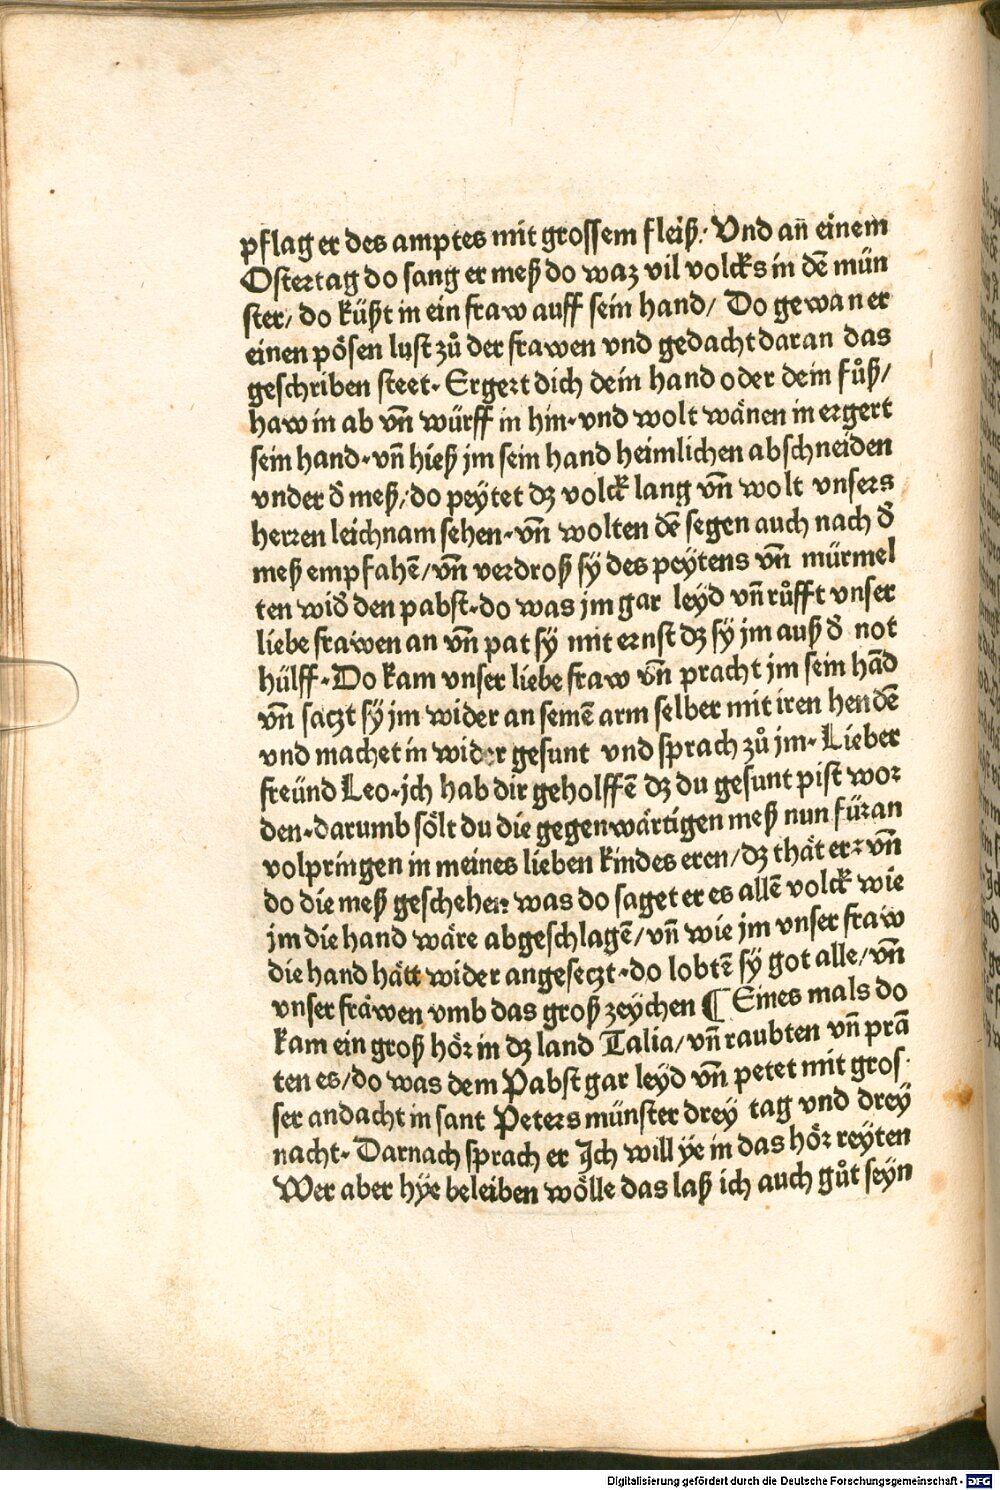 pflag er des amptes mit grossem fleiß. Und an̄ einem
Ostertag do sang er meß do waz vil volcks in dē mün
ster/ do küßt in ein fraw auff sein hand/ Do gewan er
einen pösen lust zů der frawen vnd gedacht daran das
geschriben steet. Ergert dich dein hand oder dein fůß/
haw in ab vn̄ würff in hin. vnd wolt wänen in ergert
sein hand. vn̄ hieß im sein hand heimlichen abschneiden
vnder d̄ meß/ do peÿtet dz volck lang vn̄ wolt vnsers
herren leichnam sehen. vn̄ wolten dē segen auch nach d̄
meß empfahē/ vn̄ verdroß sÿ des peÿtens vn̄ mürmel
ten wid̄ den pabst. do was jm gar leÿd vn̄ růfft vnser
liebe frawen an vn̄ pat sÿ mit ernst dz sÿ jm auß d̄ not
hülff. Do kam vnser liebe fraw vn̄ pracht jm sein hād
vn̄ saczt sÿ jm wider an seinē arm selber mit iren hendē
vnd machet in wider gesunt vnd sprach zů jm. Lieber
freünd Leo. ich hab dir geholffē dz du gesunt pist wor
den. darumb sölt du die gegenwärtigen meß nun füran
volpringen in meines lieben kindes eren/ dz thät er. vn̄
do die meß geschehen was do saget er es allē volck wie
jm die hand wäre abgeschlagē/ vn̄ wie jm vnser fraw
die hand hätt wider angeseczt. do lobtē sÿ got alle/ vn̄
vnser fräwen vmb das groß zeÿchen ¶ Eines mals do
kam ein groß hör in dz land Talia/ vn̄ raubten vn̄ prā
ten es/ do was dem Pabst gar leÿd vn̄ petet mit gros
ser andacht in sant Peters münster dreÿ tag vnd dreÿ
nacht. Darnach sprach er Ich will ÿe in das hör reÿten
Wer aber hÿe beleiben wölle das laß ich auch gůt seÿn
Digitalisierung gefördert durch die Deutsche Forschungsgemeinschaft - DFG